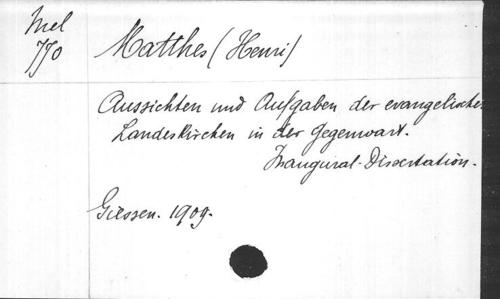 Mel
770
Matthes (Henri)
Aussichten und Aufgaben der evangelischen
Landeskirchen in der Gegenwart.
Inaugural-Dissertation.
Giessen. 1909.